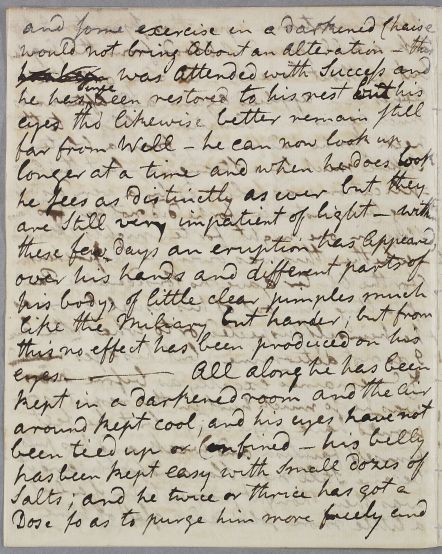 and some exercise in a darkened Chaise
would not bring about an alteration – this
was attended with Success and
he has since been restored to his rest but his
eyes tho likewise better remain still
far from Well – he can now look up
longer at a time and when he does look
he sees as distinctly as ever but they
are still very impatient of light – with
these few days an eruption has appeared
over his hands and different parts of
his body, of little clear pimples much
like the Miliary but harder, but from
this no effect has been produced on his
eyes ——— All along he has been
kept in a darkened room and the air
around kept cool, and his eyes have not
been tied up or Confined – his belly
has been kept easy with small dozes of
Salts; and he twice or thrice has got a
Dose so as to purge him more freely and